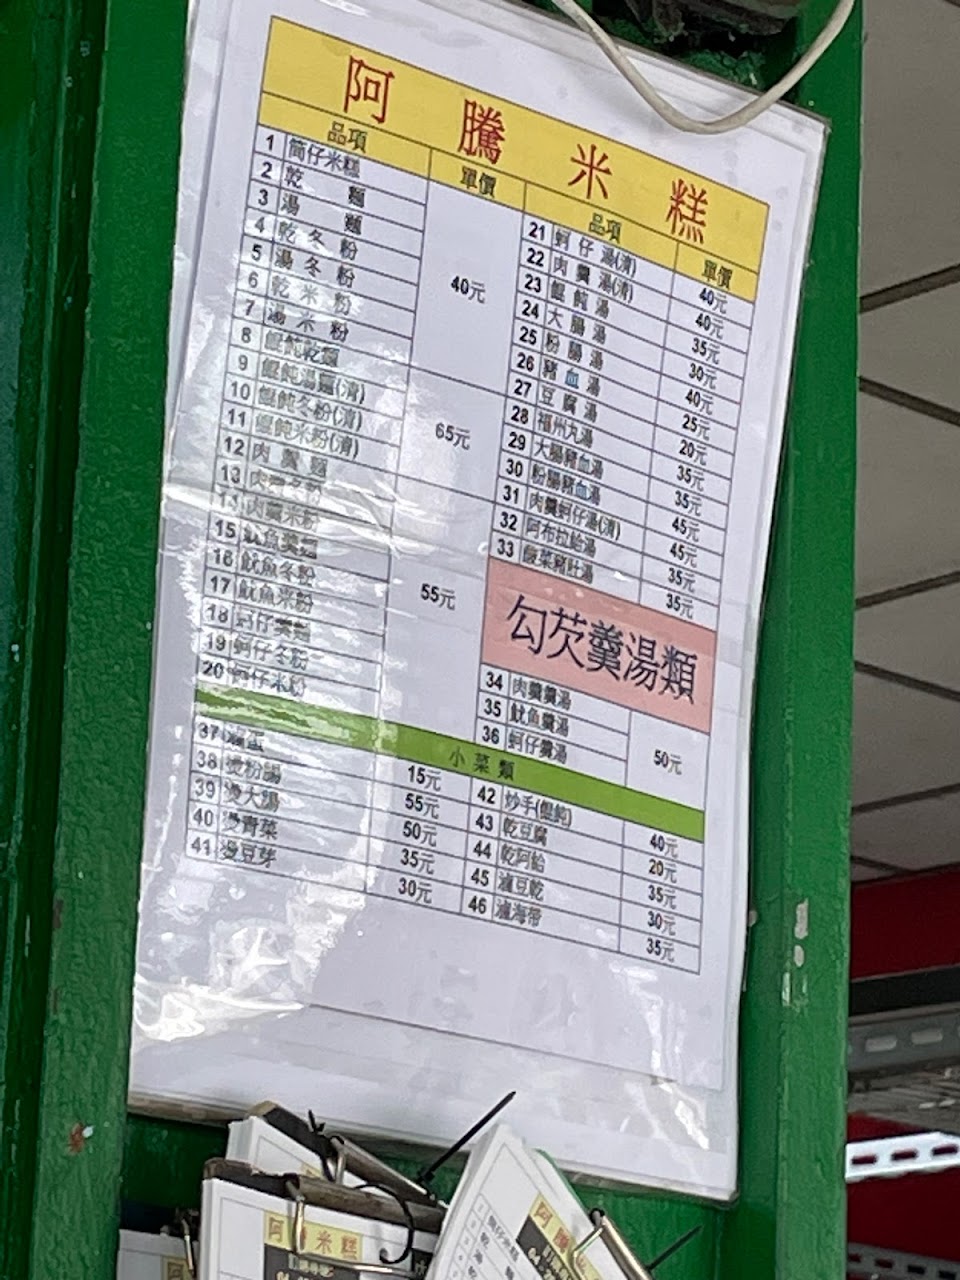 阿騰米糕
品項 單價
1 筒仔米糕
2 乾麵
3 湯麵
4 乾冬粉
5 湯冬粉
6 乾米粉
7 湯米粉
40元
8 餛飩乾麵
9 餛飩湯麵(清)
10 餛飩冬粉(清)
11 餛飩米粉(清)
65元
12 肉羹麵
13 肉羹冬粉
14 肉羹米粉
15 魷魚羹麵
16 魷魚冬粉
17 魷魚米粉
18 蚵仔羹麵
19 蚵仔冬粉
20 蚵仔米粉
55元
品項 單價
21 蚵仔湯(清) 40元
22 肉羹湯(清) 40元
23 餛飩湯 35元
24 大腸湯 30元
25 粉腸湯 40元
26 豬血湯 25元
27 豆腐湯 20元
28 福州丸湯 35元
29 大腸豬血湯 35元
30 粉腸豬血湯 45元
31 肉羹蚵仔湯(清) 45元
32 阿布拉給湯 35元
33 酸菜豬肚湯 35元
勾芡羹湯類
34 肉羹羹湯
35 魷魚羹湯
36 蚵仔羹湯
50元
小菜類
37 滷蛋 15元
38 燙粉腸 55元
39 燙大腸 50元
40 燙青菜 35元
41 燙豆芽 30元
42 炒手(餛飩) 40元
43 乾豆腐 20元
44 乾阿給 35元
45 滷豆乾 30元
46 滷海帶 35元